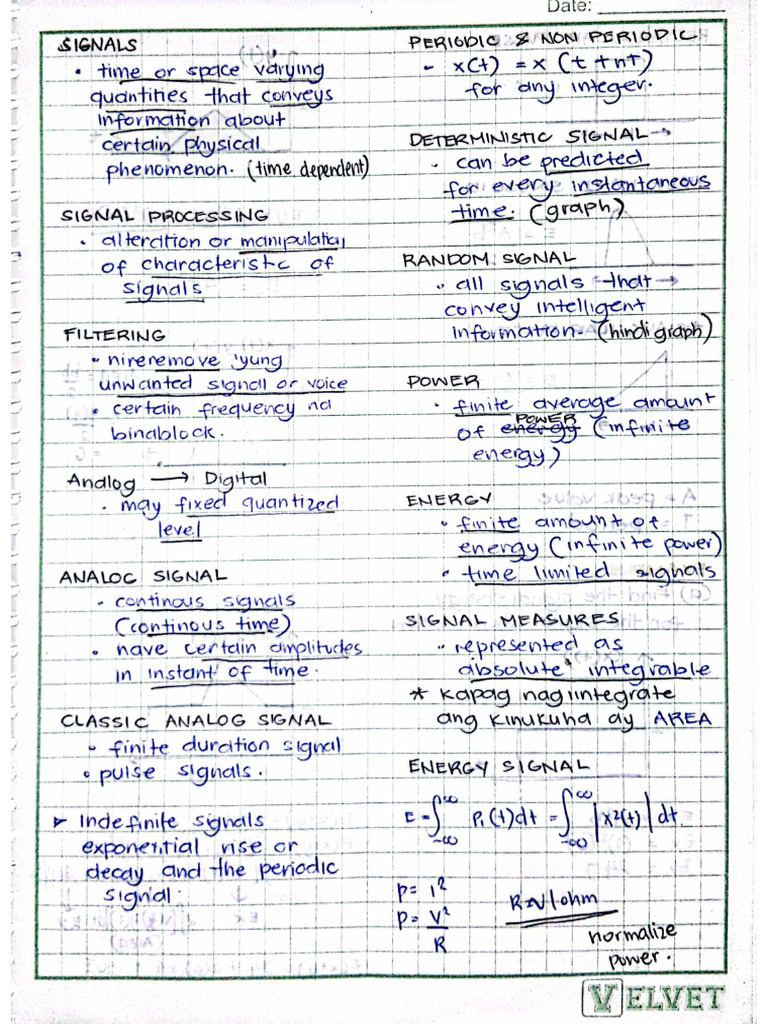 Date:
SIGNALS
• time or space varying
quantities that conveys
information about
certain physical
phenomenon. (time dependent)
SIGNAL PROCESSING
• alteration or manipulation
of characteristic of
signals
FILTERING
• nireremove 'yung
unwanted signal or voice
• certain frequency na
binablock.
Analog → Digital
• may fixed quantized
level
ANALOG SIGNAL
• continous signals
(continous time)
• have certain amplitudes
in instant of time.
CLASSIC ANALOG SIGNAL
• finite duration signal
• pulse signals.
➤ Indefinite signals
exponential rise or
decay and the periodic
signal.
PERIODIC & NON PERIODIC
- x(t) = x (t + nt)
for any integer.
DETERMINISTIC SIGNAL →
• can be predicted
for every instantaneous
time. (graph)
RANDOM SIGNAL
• all signals that
convey intelligent
information. (hindi graph)
POWER
• finite average amount
of energy POWER (infinite
energy)
ENERGY
• finite amount of
energy (infinite power)
• time limited signals
SIGNAL MEASURES
• represented as
absolute integrable
* kapag nagiintegrate
ang kinukuha ay AREA
ENERGY SIGNAL
E = ∫_{-∞}^{∞} Pi(t)dt = ∫_{-∞}^{∞} |x²(t)| dt
P = I²
P = V²/R
R ≈ 1 ohm
normalize
power.
VELVET